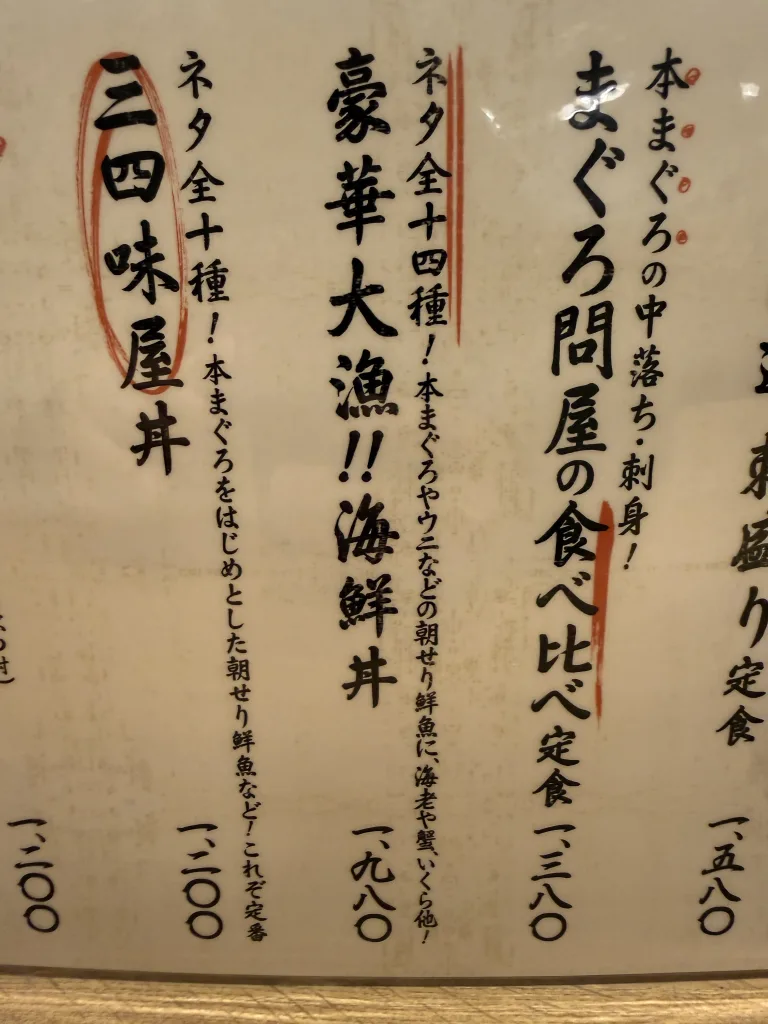 刺盛り定食
一、五八〇
本まぐろの中落ち・刺身!
まぐろ問屋の食べ比べ定食
一、三八〇
ネタ全十四種!本まぐろやウニなどの朝せり鮮魚に、海老や蟹、いくら他!
豪華大漁!!海鮮丼
一、九八〇
ネタ全十種!本まぐろをはじめとした朝せり鮮魚など!これぞ定番
三四味屋丼
一、二〇〇
一、二〇〇